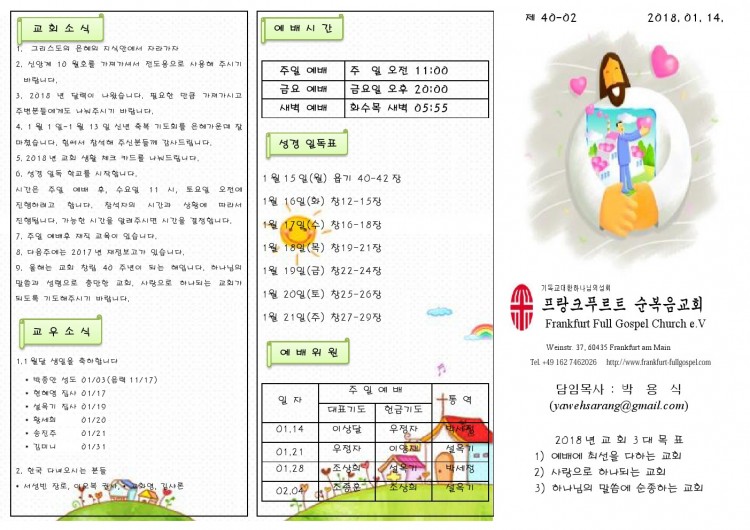 교회소식
1. 그리스도의 은혜의 지식안에서 자라가자
2. 신앙계 10 월호를 가져가셔서 전도용으로 사용해 주시기
바랍니다.
3. 2018 년 달력이 나왔습니다. 필요한 만큼 가져가시고
주변분들에게도 나눠주시기 바랍니다.
4. 1 월 1 일-1 월 13 일 신년 축복 기도회를 은혜가운데 잘
마쳤습니다. 힘써서 참석해 주신분들께 감사드립니다.
5. 2018 년 교회 생활 체크 카드를 나눠드립니다.
6. 성경 일독 학교를 시작합니다.
시간은 주일 예배 후, 수요일 11 시, 토요일 오전에
진행하려고 합니다. 참석자의 시간과 상황에 따라서
진행됩니다. 가능한 시간을 알려주시면 시간을 결정합니다.
7. 주일 예배후 제직 교육이 있습니다.
8. 다음주에는 2017 년 재정보고가 있습니다.
9. 올해는 교회 창립 40 주년이 되는 해입니다. 하나님의
말씀과 성령으로 충만한 교회, 사랑으로 하나되는 교회가
되도록 기도해주시기 바랍니다.
교우소식
1.1 월달 생일을 축하합니다
• 박종만 성도 01/03(음력 11/17)
• 현혜영 집사 01/17
• 설옥기 집사 01/19
• 황세희 01/20
• 송진주 01/21
• 김떠나 01/31
2. 한국 다녀오시는 분들
예배시간
주일 예배 주 일 오전 11:00
금요 예배 금요일 오후 20:00
새벽 예배 화수목 새벽 05:55
성경 일독표
1월 15일(월) 욥기 40-42장
1월 16일(화) 창12-15장
1월 17일(수) 창16-18장
1월 18일(목) 창19-21장
1월 19일(금) 창22-24장
1월 20일(토) 창25-26장
1월 21일(주) 창27-29장
예배위원
일자 주일예배 통역
대표기도 헌금기도
01.14 이상달 우정자 박세정
01.21 우정자 설옥기
01.28 조상희 설옥기 박세정
02.04 조종훈 조상희 설옥기
제 40-02 2018. 01. 14.
기독교대한하나님의성회
프랑크푸르트 순복음교회
Frankfurt Full Gospel Church e.V
Weinstr. 37, 60435 Frankfurt am Main
Tel. +49 162 7462026 http://www.frankfurt-fullgospel.com
담임목사 : 박 용 식
(yawehsarang@gmail.com)
2018년 교회 3대 목표
1) 예배에 최선을 다하는 교회
2) 사랑으로 하나되는 교회
3) 하나님의 말씀에 순종하는 교회